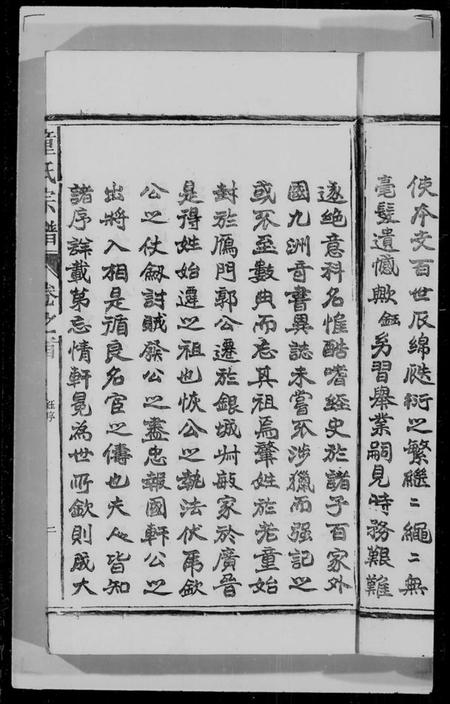 使本支百世瓜綿瓞衍之繁繼〻繩〻無
毫髮遺憾歟鈺另習舉業嗣見時務艱難
遂絶意科名惟酷嗜經史於諸子百家外
國九洲音書異誌未嘗不涉獵而强記之
或不至數典而忘其祖焉肇姓於老童始
封於鴈門郭公遷於銀城州敏家於廣晉
是得姓始遷之祖也恢公之執法伏虎欽
公之仗劍討賊發公之盡忠報國軒公之
出將入相是循良名宦之傳也夫人皆知
諸序詳載第忘情軒冕為世所欽則成大
童氏宗譜
卷之首
鈺序
二